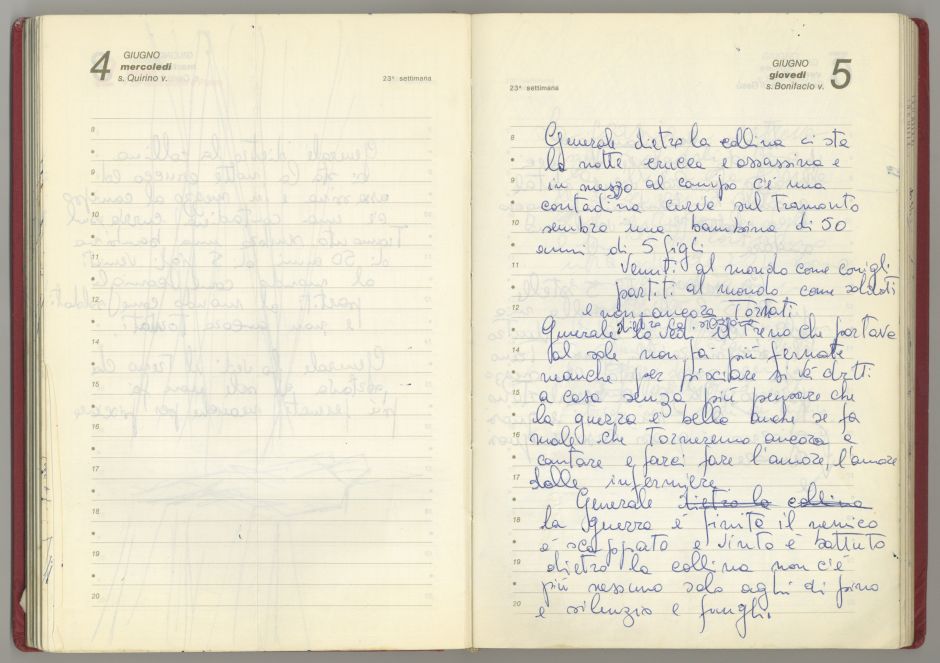 4 GIUGNO
mercoledì
s. Quirino v.
23ª settimana
8
9
10
11
12
14
15
16
17
18
19
20
GIUGNO 5
giovedì
s. Bonifacio v.
23ª settimana
8 Generale dietro la collina ci sta
la notte crucca e assassina e
9 in mezzo al campo c'è una
contadina curva sul tramonto
10 sembra una bambina di 50
anni di 5 figli
11 Venuti al mondo come conigli
partiti al mondo come soldati
12 e non ancora Tornati
dietro la stazione
Generale lo vedi il Treno che portava
14 al sole non fai più fermate
neanche per pisciare si va dritti
15 a casa senza più pensare che
la guerra è bella anche se fa
16 male che Torneremo ancora a
cantare e farci fare l'amore, l'amore
17 dalle infermiere
Generale dietro la collina
18 la guerra è finita il nemico
è scappato e vinto è battuto
19 dietro la collina non c'è
più nessuno solo aghi di pino
20 e silenzio e funghi.